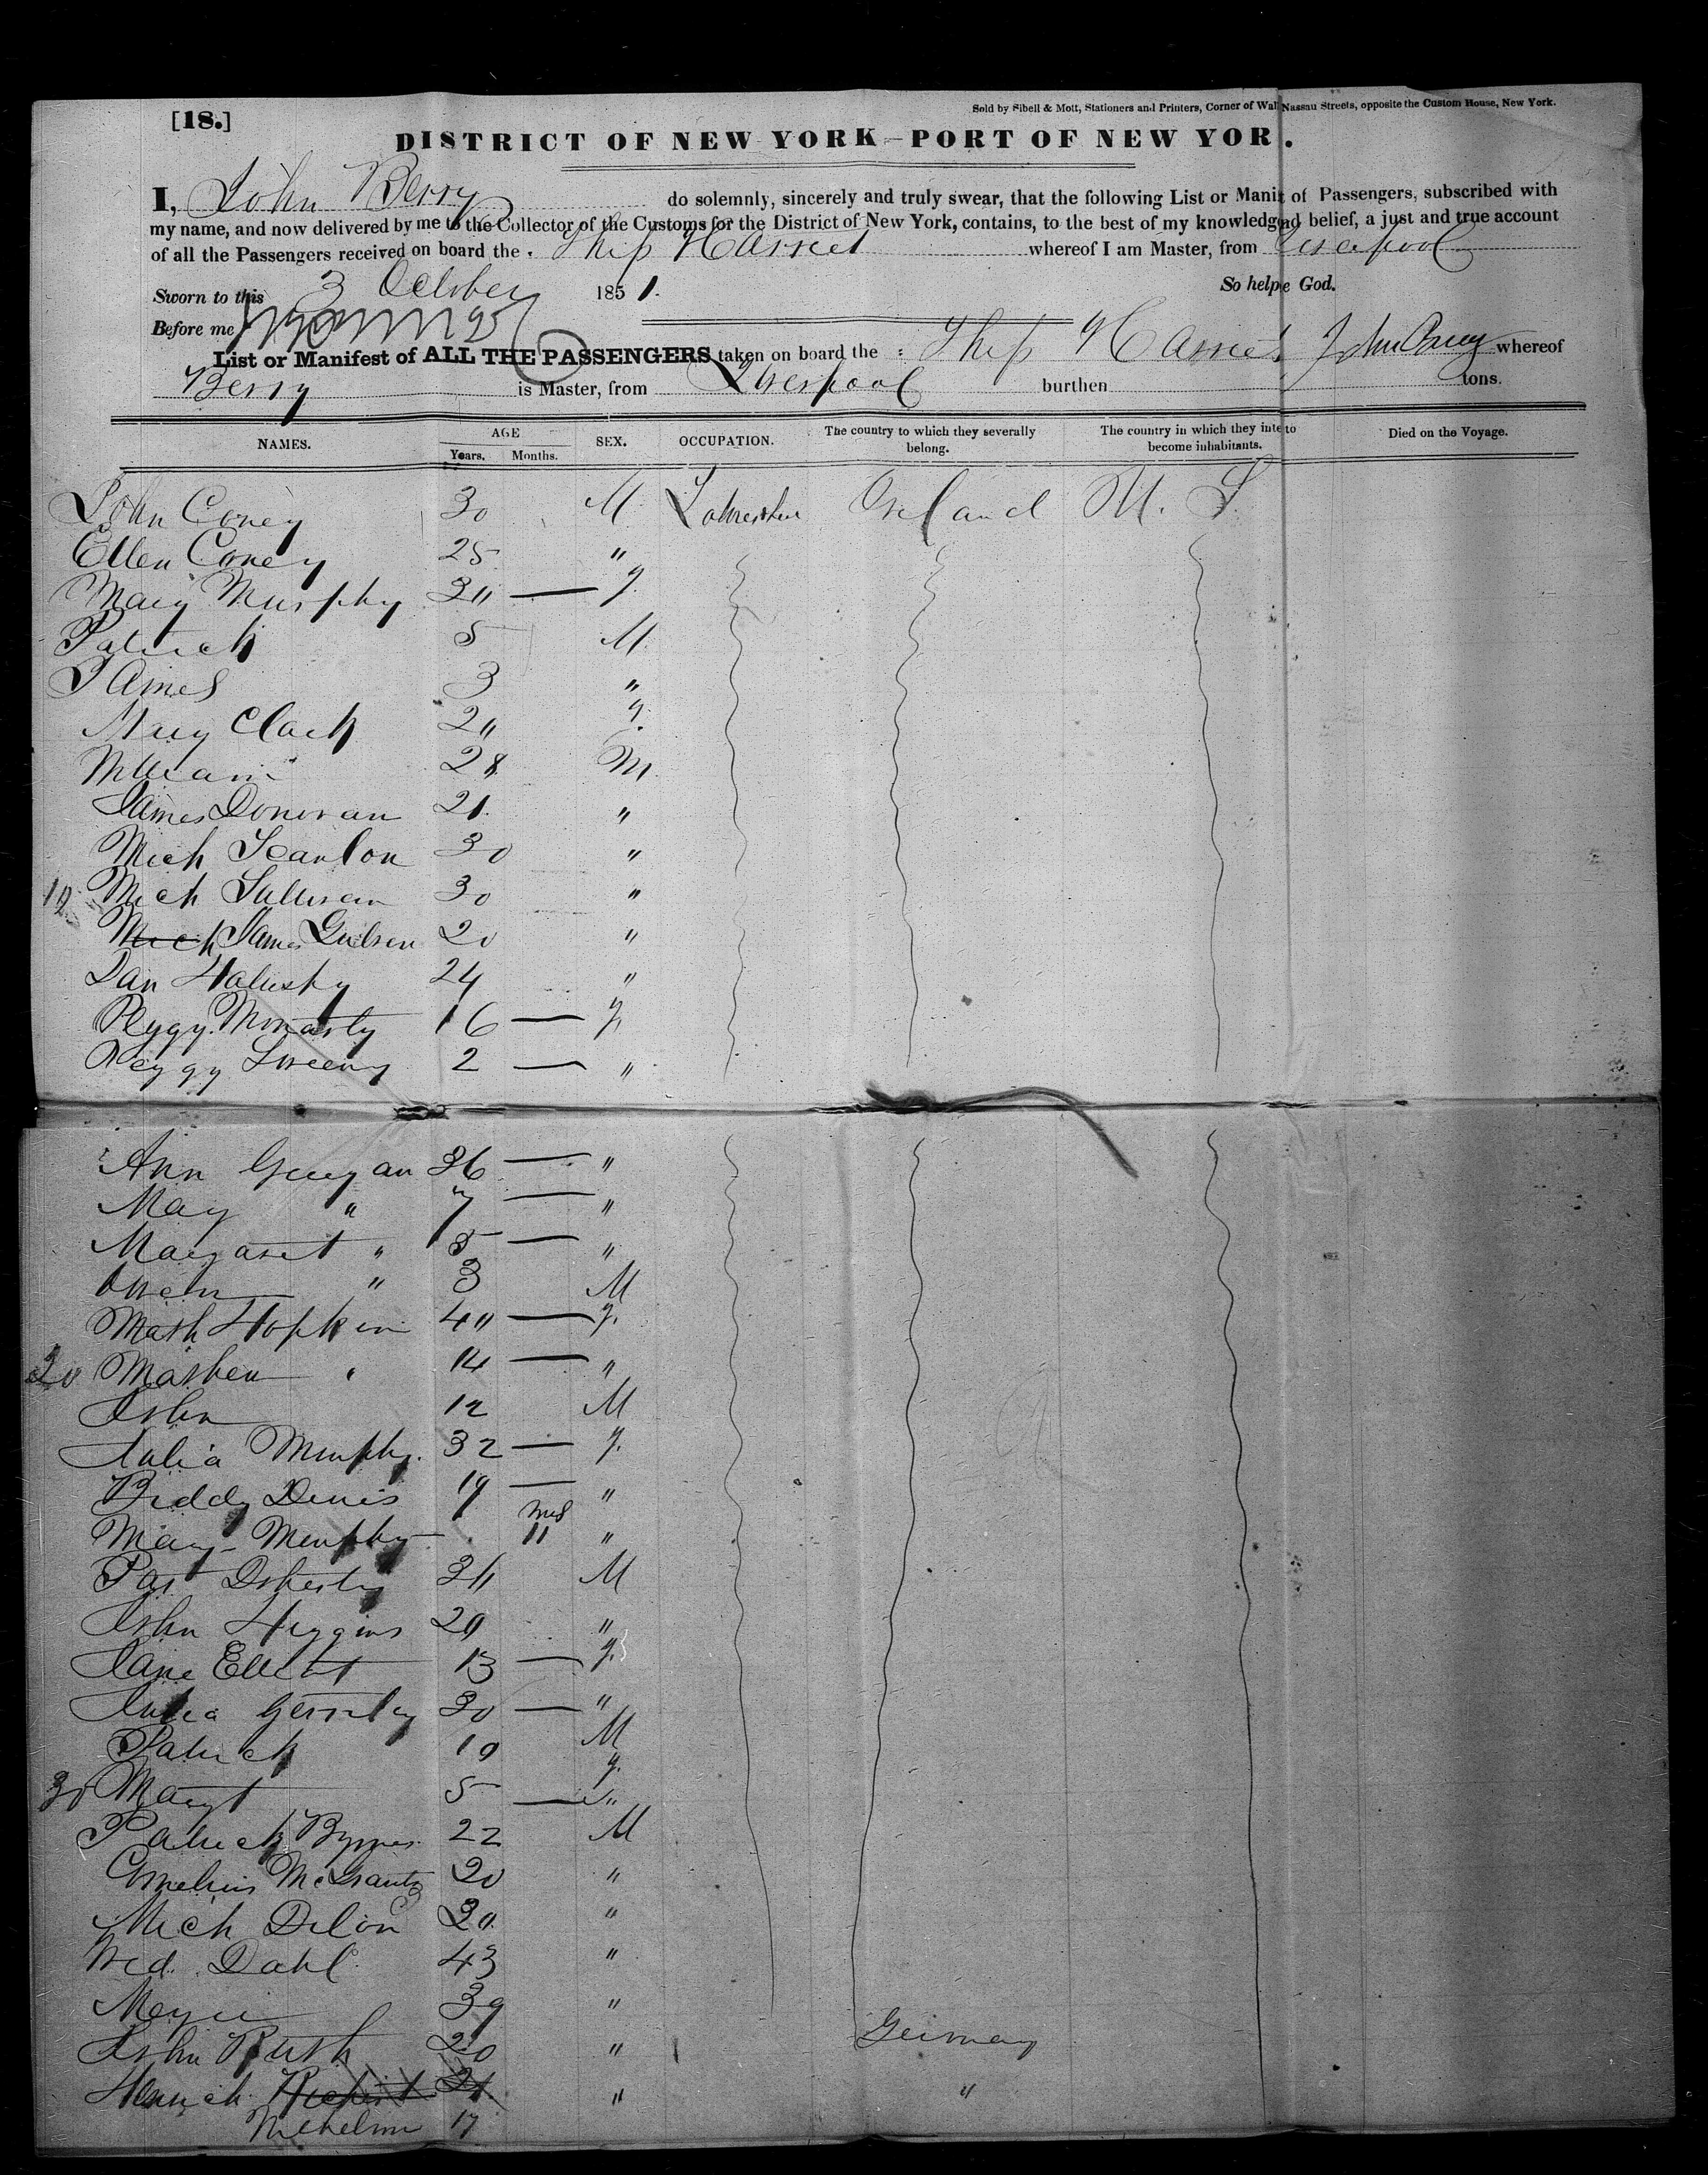 [18.]
Sold by Sibell & Mott, Stationers and Printers, Corner of Wall Nassau Streets, opposite the Custom House, New York.
DISTRICT OF NEW YORK—PORT OF NEW YOR .
I, John Berry do solemnly, sincerely and truly swear, that the following List or Manif of Passengers, subscribed with
my name, and now delivered by me to the Collector of the Customs for the District of New York, contains, to the best of my knowledg nd belief, a just and true account
of all the Passengers received on board the Ship Harriet whereof I am Master, from Liverpool
Sworn to this 3 October 1851. So help e God.
Before me
List or Manifest of ALL THE PASSENGERS taken on board the Ship Harriet John Berry whereof
Berry is Master, from Liverpool burthen tons.
NAMES. AGE SEX. OCCUPATION. The country to which they severally belong. The country in which they inte to become inhabitants. Died on the Voyage.
Years. Months.
John Coney 30 M Ireland U. S.
Ellen Coney 25 "
Mary Murphy 30 — f
Patrick 5 M
James 3 "
Mary Clark 20 f
William 28 M
James Donovan 21 "
Mich Scanlon 30 "
10 Mich Sullivan 30 "
Mich James 20 "
Dan 24 "
Peggy Moriarty 16 — f
Peggy Sweeny 2 — "
Ann 36 — "
Mary " 7 — "
Margaret " 5 — "
Owen " 3 M
Hopkin 40 — f
20 " 14 — "
John 12 M
Julia Murphy 32 — f
Biddy Denis 19 — "
Mary Murphy mos 11 "
Pat Doherty 30 M
John Higgins 20 "
Jane Elliott 13 — f
Julia 30 — "
Patrick 10 M
30 Margt 5 — f
Patrick Byrnes 22 M
Cornelius 20 "
Mich Dilon 30 "
Fred. Dahl 43 "
Meyer 39 "
John Rush 20 " Germany
Henrich 21 " "
Wilhelm 17